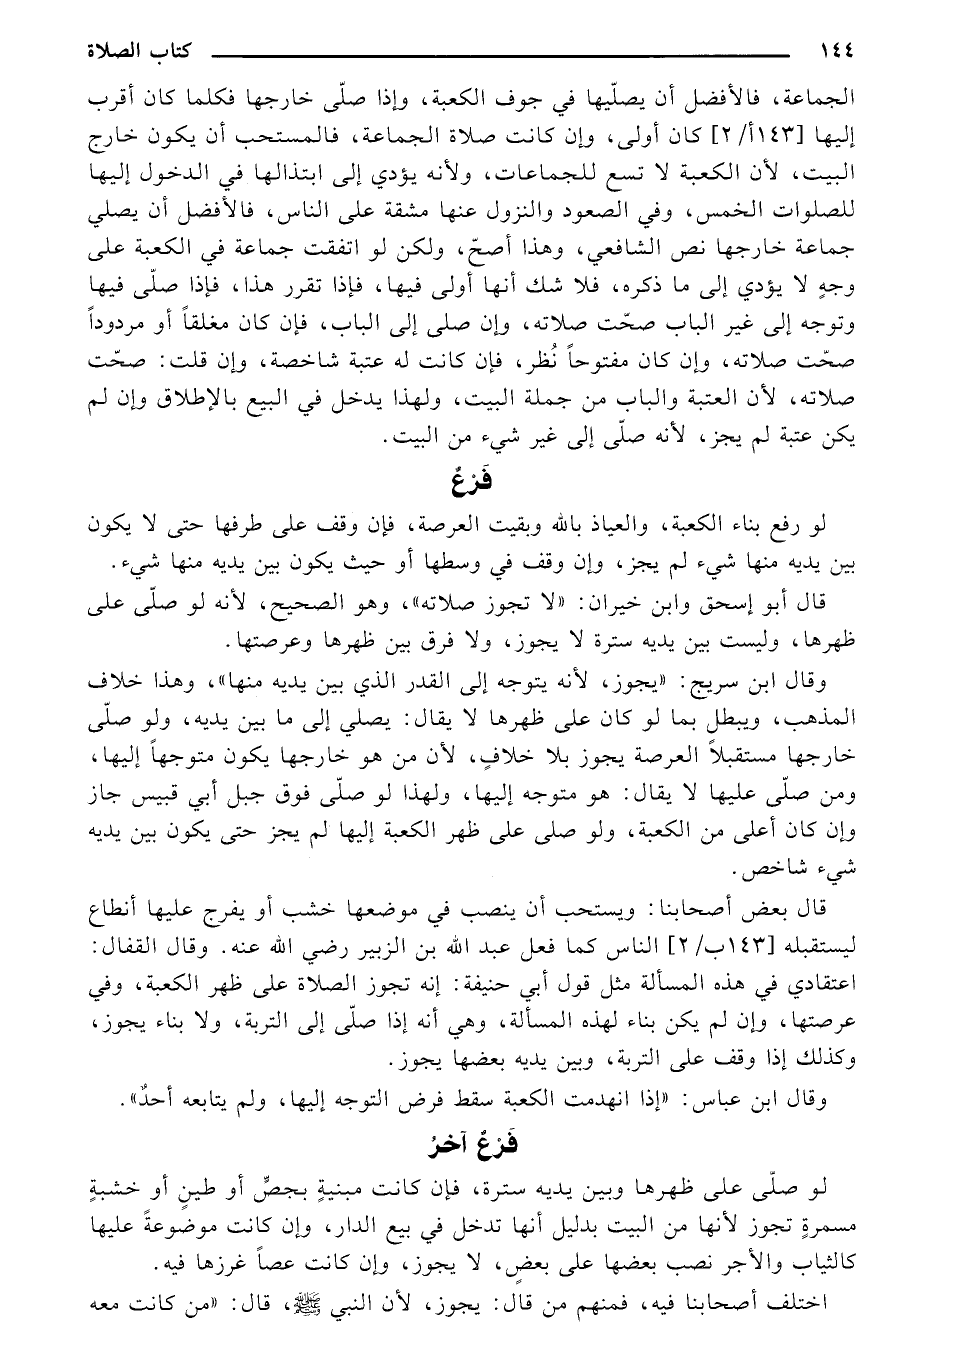 ١٤٤ كتاب الصلاة
الجماعة، فالأفضل أن يصلّيها في جوف الكعبة، وإذا صلّى خارجها فكلما كان أقرب
إليها [١٤٣أ/ ٢] كان أولى، وإن كانت صلاة الجماعة، فالمستحب أن يكون خارج
البيت، لأن الكعبة لا تسع للجماعات، ولأنه يؤدي إلى ابتذالها في الدخول إليها
للصلوات الخمس، وفي الصعود والنزول عنها مشقة على الناس، فالأفضل أن يصلي
جماعة خارجها نص الشافعي، وهذا أصحّ، ولكن لو اتفقت جماعة في الكعبة على
وجهٍ لا يؤدي إلى ما ذكره، فلا شك أنها أولى فيها، فإذا تقرر هذا، فإذا صلّى فيها
وتوجه إلى غير الباب صحّت صلاته، وإن صلى إلى الباب، فإن كان مغلقاً أو مردوداً
صحّت صلاته، وإن كان مفتوحاً نُظر، فإن كانت له عتبة شاخصة، وإن قلت: صحّت
صلاته، لأن العتبة والباب من جملة البيت، ولهذا يدخل في البيع بالإطلاق وإن لم
يكن عتبة لم يجز، لأنه صلّى إلى غير شيء من البيت.
فَرْعٌ
لو رفع بناء الكعبة، والعياذ بالله وبقيت العرصة، فإن وقف على طرفها حتى لا يكون
بين يديه منها شيء لم يجز، وإن وقف في وسطها أو حيث يكون بين يديه منها شيء.
قال أبو إسحق وابن خيران: «لا تجوز صلاته»، وهو الصحيح، لأنه لو صلّى على
ظهرها، وليست بين يديه سترة لا يجوز، ولا فرق بين ظهرها وعرصتها.
وقال ابن سريج: «يجوز، لأنه يتوجه إلى القدر الذي بين يديه منها»، وهذا خلاف
المذهب، ويبطل بما لو كان على ظهرها لا يقال: يصلي إلى ما بين يديه، ولو صلّى
خارجها مستقبلاً العرصة يجوز بلا خلافٍ، لأن من هو خارجها يكون متوجهاً إليها،
ومن صلّى عليها لا يقال: هو متوجه إليها، ولهذا لو صلّى فوق جبل أبي قبيس جاز
وإن كان أعلى من الكعبة، ولو صلى على ظهر الكعبة إليها لم يجز حتى يكون بين يديه
شيء شاخص.
قال بعض أصحابنا: ويستحب أن ينصب في موضعها خشب أو يفرج عليها أنطاع
ليستقبله [١٤٣ب/ ٢] الناس كما فعل عبد الله بن الزبير رضي الله عنه. وقال القفال:
اعتقادي في هذه المسألة مثل قول أبي حنيفة: إنه تجوز الصلاة على ظهر الكعبة، وفي
عرصتها، وإن لم يكن بناء لهذه المسألة، وهي أنه إذا صلّى إلى التربة، ولا بناء يجوز،
وكذلك إذا وقف على التربة، وبين يديه بعضها يجوز.
وقال ابن عباس: «إذا انهدمت الكعبة سقط فرض التوجه إليها، ولم يتابعه أحدٌ».
فَرْعٌ آخرُ
لو صلّى على ظهرها وبين يديه سترة، فإن كانت مبنيةٍ بجصٍّ أو طينٍ أو خشبةٍ
مسمرةٍ تجوز لأنها من البيت بدليل أنها تدخل في بيع الدار، وإن كانت موضوعةً عليها
كالثياب والأجر نصب بعضها على بعضٍ، لا يجوز، وإن كانت عصاً غرزها فيه.
اختلف أصحابنا فيه، فمنهم من قال: يجوز، لأن النبي ﷺ، قال: «من كانت معه